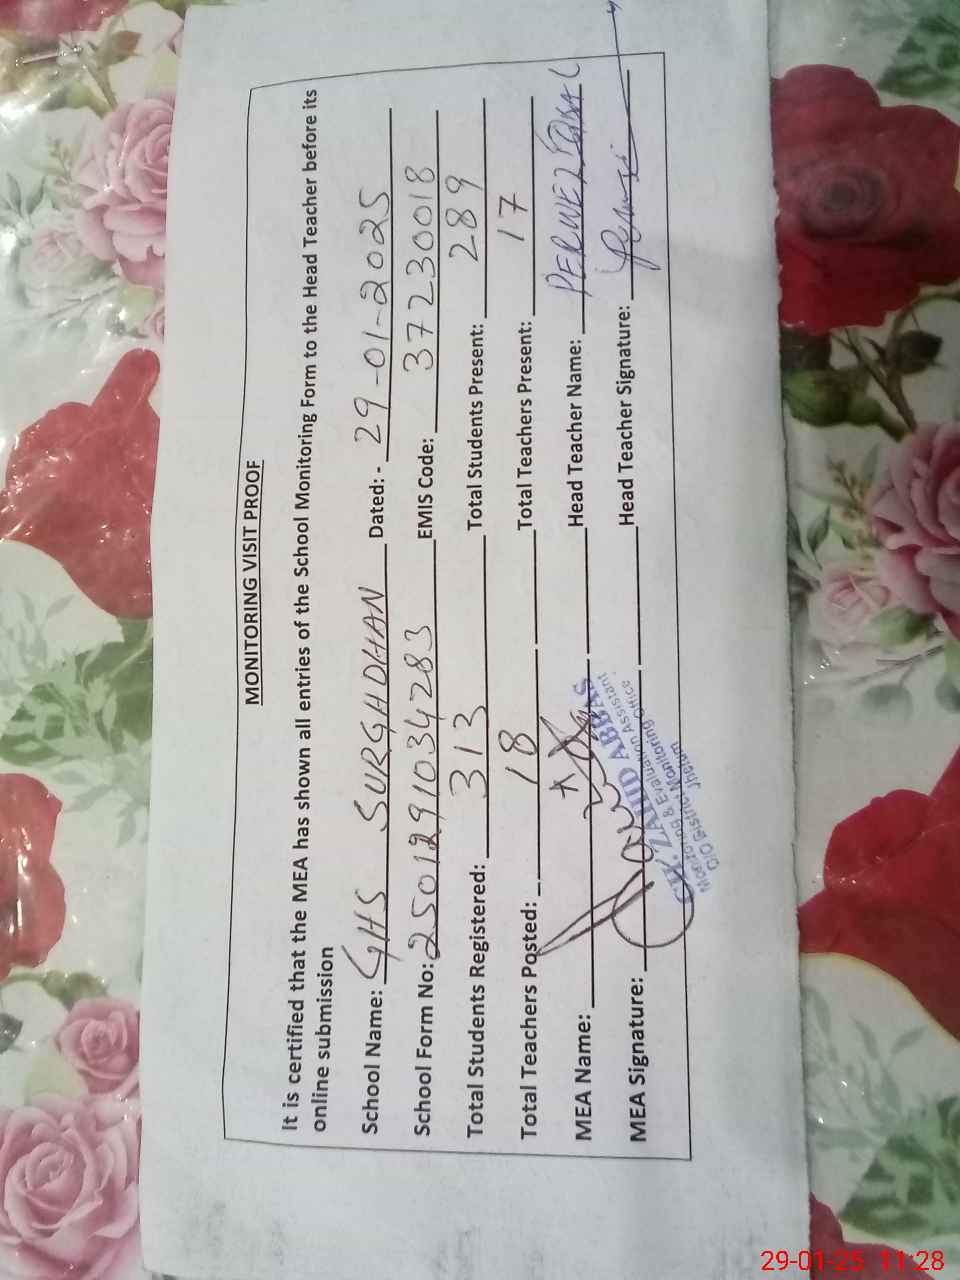 MONITORING VISIT PROOF
It is certified that the MEA has shown all entries of the School Monitoring Form to the Head Teacher before its
online submission
School Name: GHS SURGHDHAN Dated: - 29-01-2025
School Form No: 2501291034283 EMIS Code: 37230018
Total Students Registered: 313 Total Students Present: 289
Total Teachers Posted: 18 Total Teachers Present: 17
MEA Name: Head Teacher Name: PERWEZ IQBAL
MEA Signature: Head Teacher Signature:
CH. ZAHID ABBAS
Monitoring & Evaluation Assistant
O/O District Monitoring Office
Jhelum
29-01-25 11:28